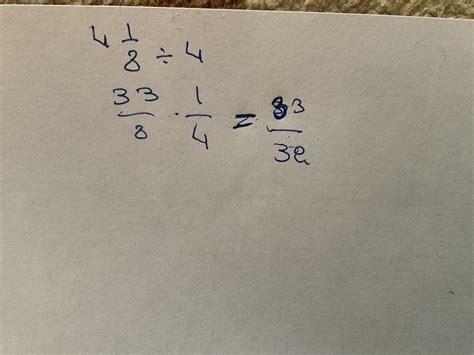 4 1/8 ÷ 4
33/8 · 1/4 = 33/32